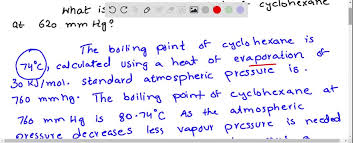 What is cyclohexane
at 620 mm Hg?
The boiling point of cyclohexane is
74°C, calculated using a heat of evaporation of
30 KJ/mol. standard atmospheric pressure is.
760 mmHg. The boiling point of cyclohexane at
760 mm Hg is 80.74°C As the atmospheric
pressure decreases less vapour pressure is needed